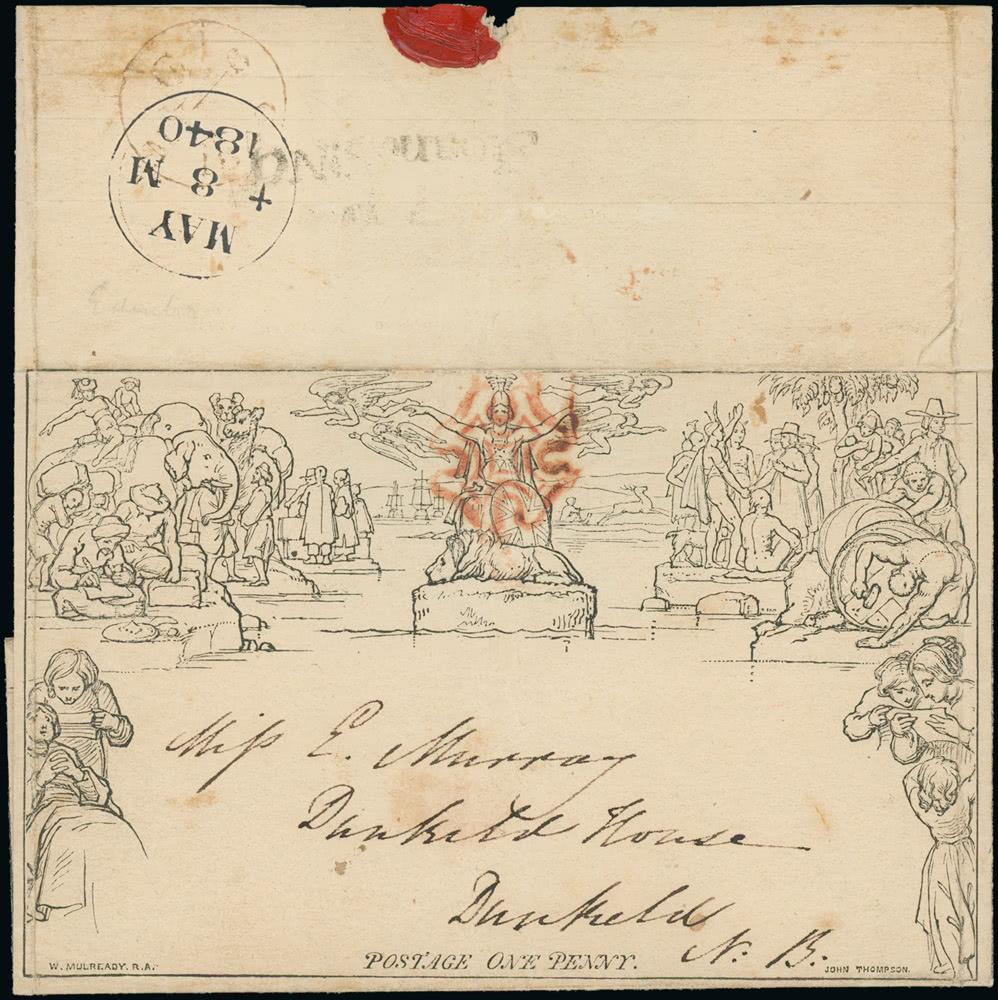 MAY
8 M
1840
Miss E. Murray
Dunkeld House
Dunkeld
N. B.
W. MULREADY. R.A.
POSTAGE ONE PENNY.
JOHN THOMPSON.